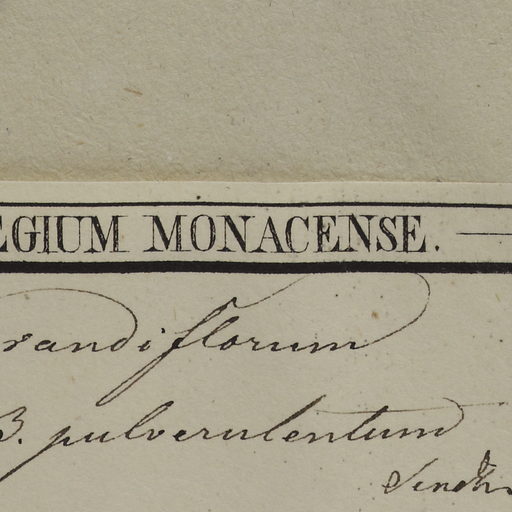 EGIUM MONACENSE.
randiflorum
B. pulverulentum